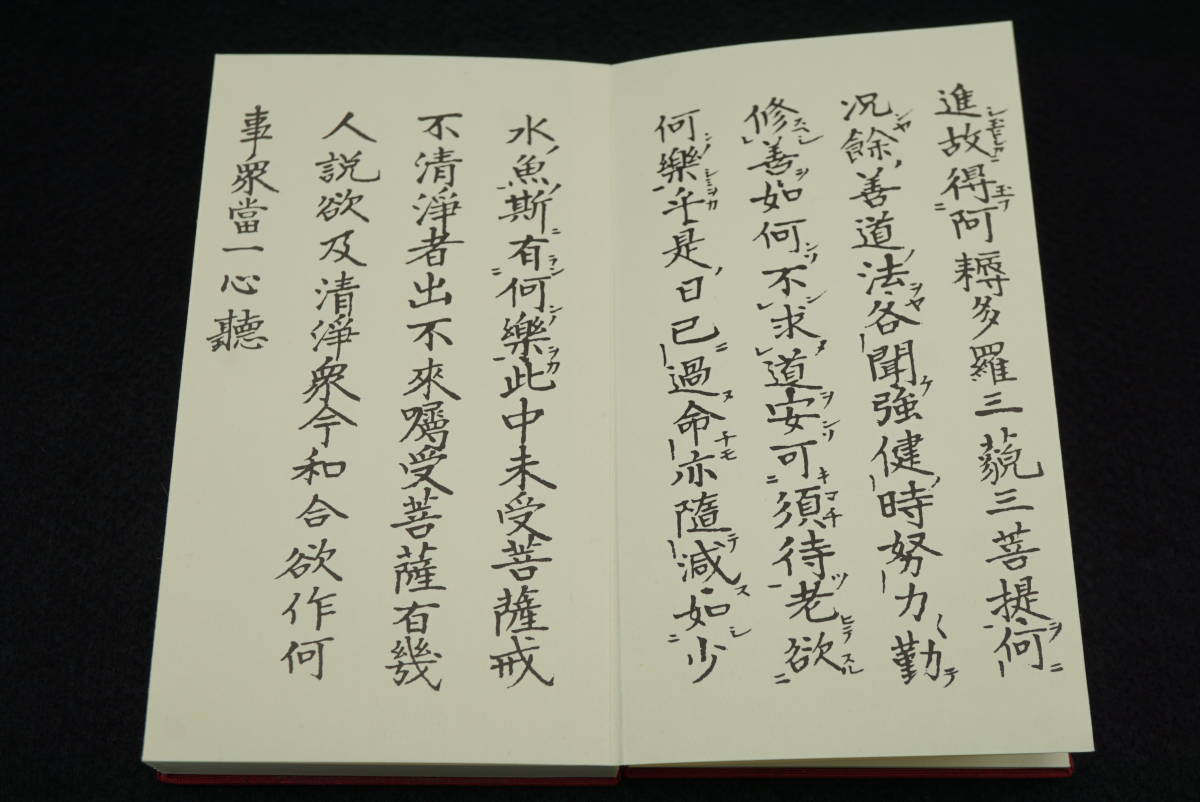 進故得阿耨多羅三藐三菩提何
況餘善道法各聞強健時努力勤
修善如何不求道安可須待老欲
何樂乎是日已過命亦隨減如少
水魚斯有何樂此中未受菩薩戒
不清淨者出不來囑受菩薩有幾
人説欲及清淨衆今和合欲作何
事衆當一心聽